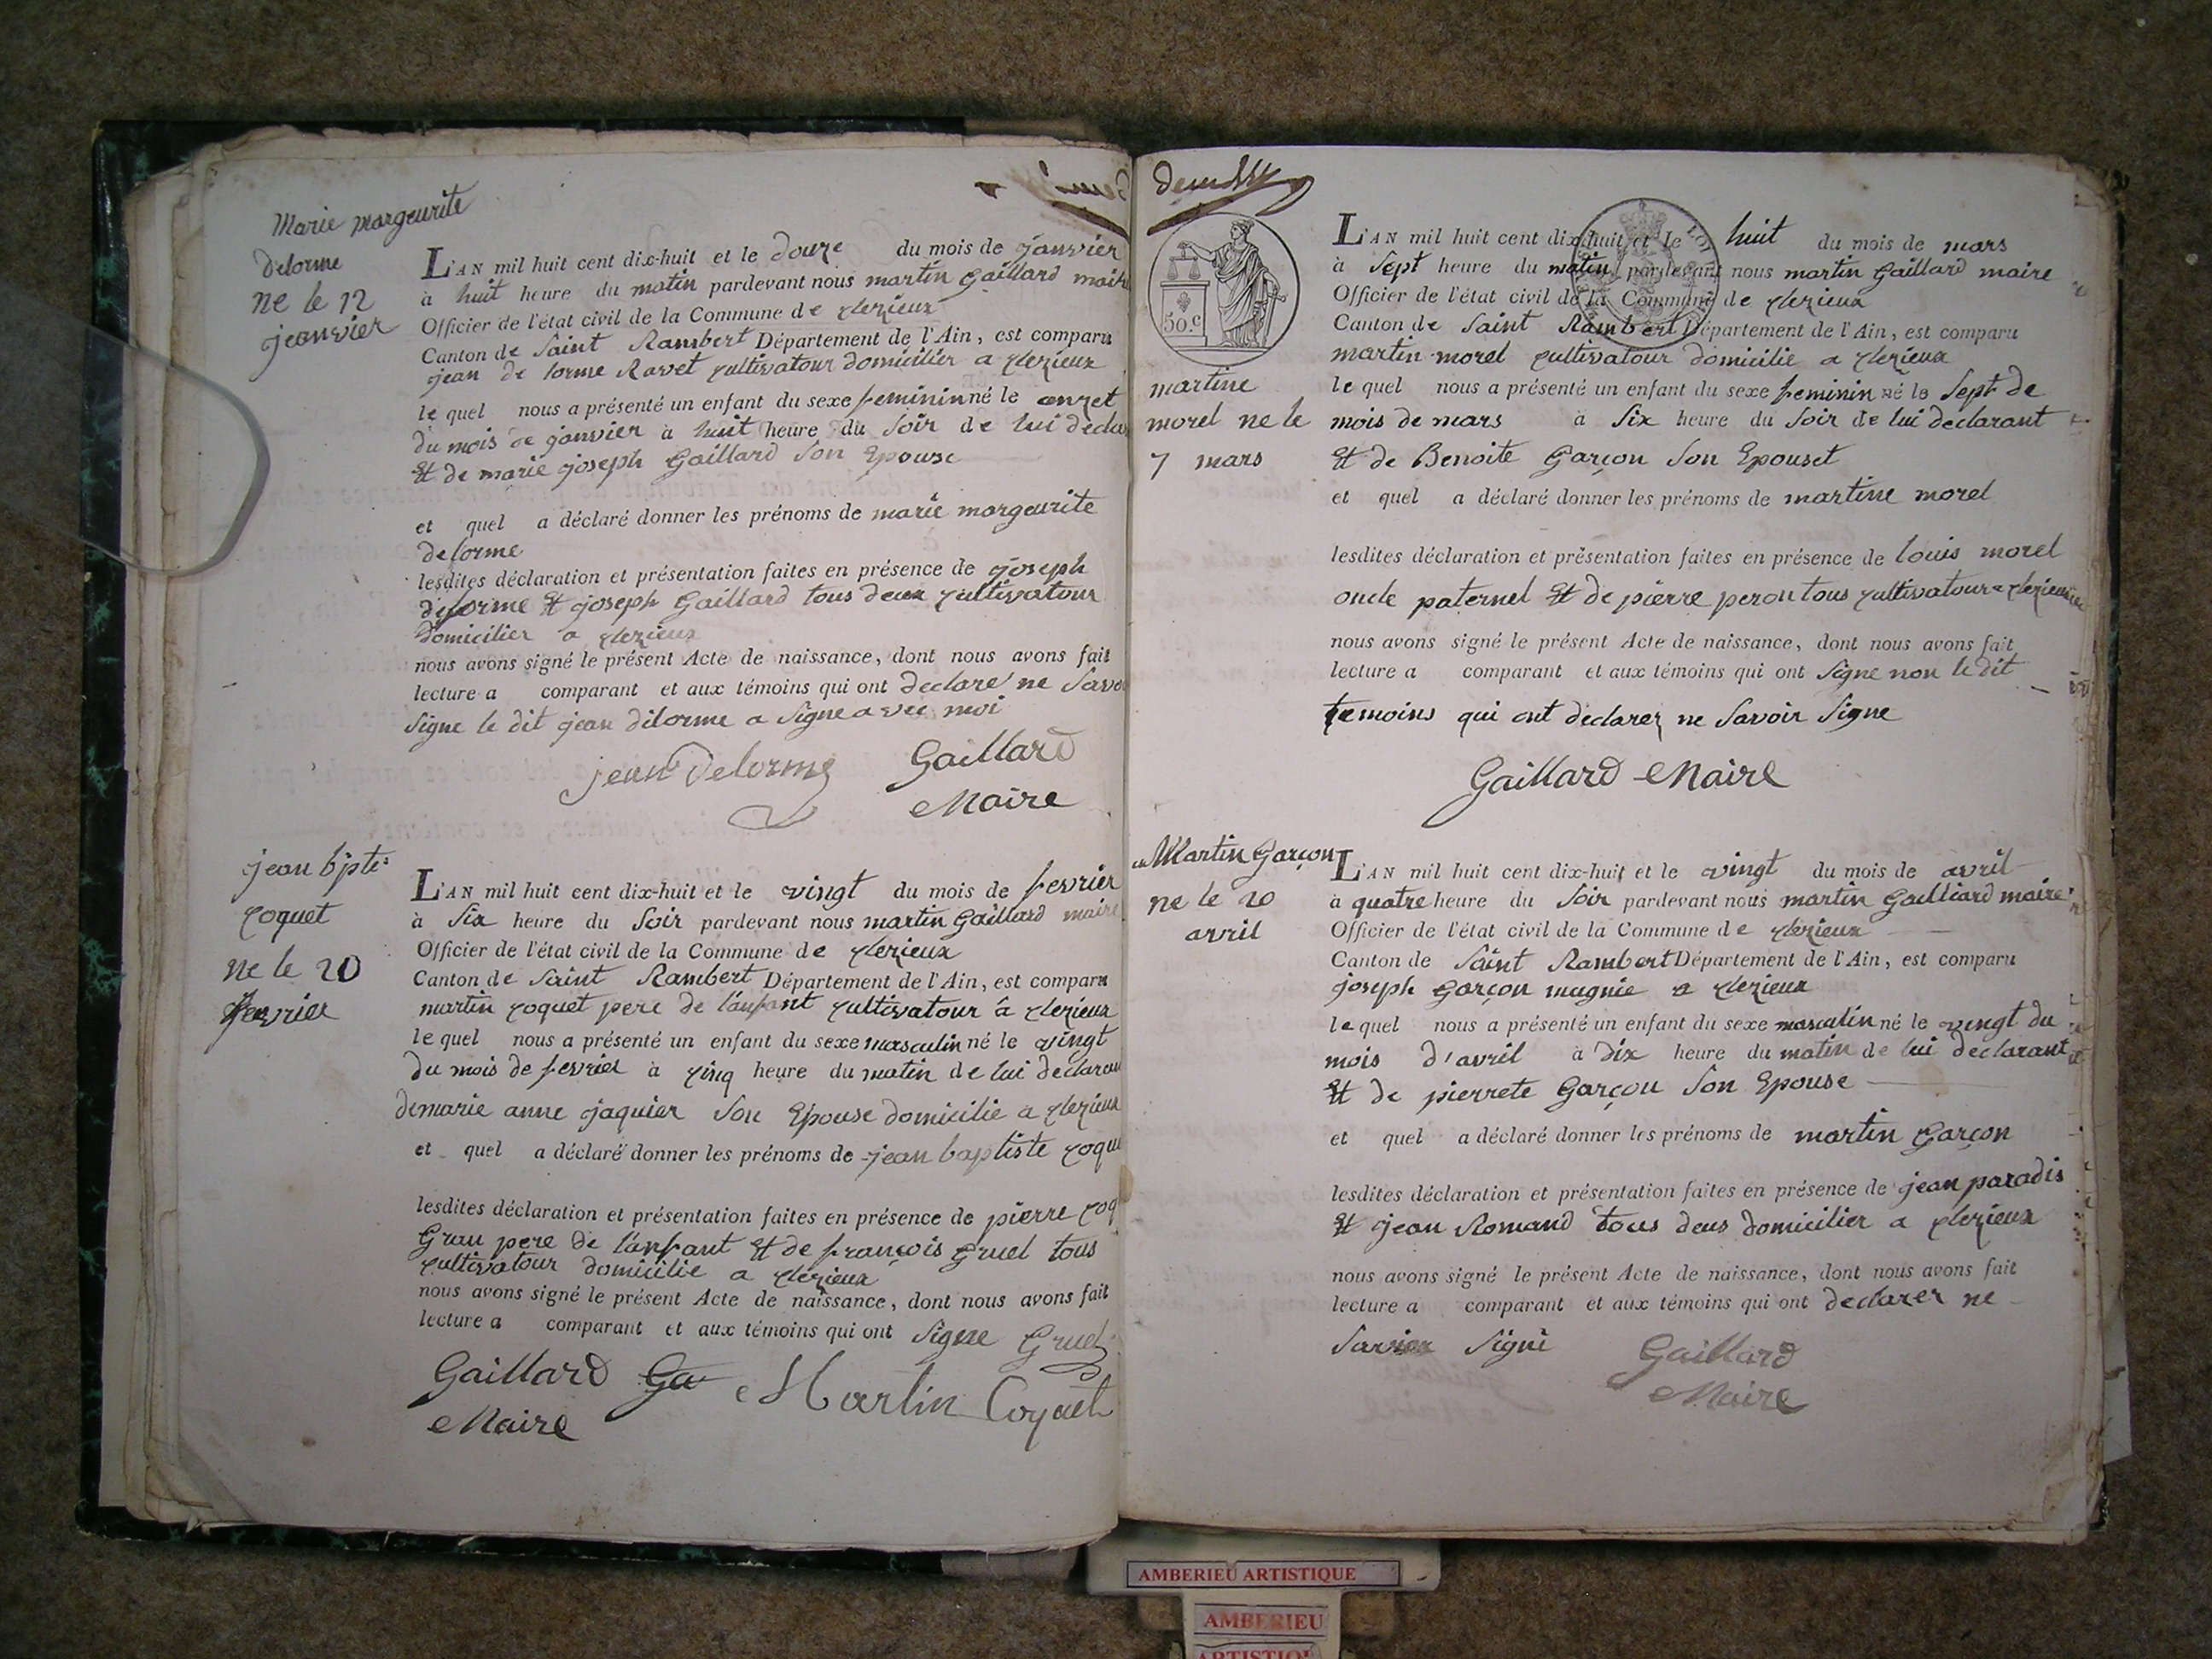 Marie margeurite
delorme
ne le 12
jeanvier
L'AN mil huit cent dix-huit et le douze du mois de janvier
à huit heure du matin pardevant nous martin Gaillard maire
Officier de l'état civil de la Commune de clezieux
Canton de Saint Rambert Département de l'Ain, est comparu
jean de lorme Ravet cultivatour domicilier a clezieux
le quel nous a présenté un enfant du sexe feminin né le onzet
du mois de janvier à huit heure du Soir de lui declar
Et de marie joseph Gaillard Son Epouse
et quel a déclaré donner les prénoms de marie margeurite
delorme
lesdites déclaration et présentation faites en présence de joseph
delorme Et joseph Gaillard tous deux cultivatour
domicilier a clezieux
nous avons signé le présent Acte de naissance, dont nous avons fait
lecture a comparant et aux témoins qui ont declare ne Savoi
Signe le dit jean dilorme a Signe avec moi
jean Delorme Gaillard
Maire
jean bpte
coquet
ne le 20
fevrier
L'AN mil huit cent dix-huit et le vingt du mois de fevrier
à Six heure du Soir pardevant nous martin Gaillard maire
Officier de l'état civil de la Commune de clezieux
Canton de Saint Rambert Département de l'Ain, est comparu
martin coquet pere de l'anfant cultivatour à clezieux
le quel nous a présenté un enfant du sexe masculin né le vingt
du mois de fevrier à cinq heure du matin de lui declaran
de marie anne jaquier Son Epouse domicilie a clezieux
et quel a déclaré donner les prénoms de jean baptiste coqu
lesdites déclaration et présentation faites en présence de pierre coq
Gran pere de l'anfant Et de françois Gruel tous
cultivatour domicilie a clezieux
nous avons signé le présent Acte de naissance, dont nous avons fait
lecture a comparant et aux témoins qui ont Signe Gruel
Gaillard Ga Martin Coquet
Maire
50.c
martine
morel ne le
7 mars
L'AN mil huit cent dix-huit et le huit du mois de mars
à Sept heure du matin pardevant nous martin Gaillard maire
Officier de l'état civil de la Commune de clezieux
Canton de Saint Rambert Département de l'Ain, est comparu
martin morel cultivatour domicilie a clezieux
le quel nous a présenté un enfant du sexe feminin né le Sept de
mois de mars à Six heure du Soir de lui declarant
Et de Benoite Garçon Son Epouset
et quel a déclaré donner les prénoms de martine morel
lesdites déclaration et présentation faites en présence de louis morel
oncle paternel Et de pierre peron tous cultivatour a clezieux
nous avons signé le présent Acte de naissance, dont nous avons fait
lecture a comparant et aux témoins qui ont Signe non le dit
temoins qui ont declarez ne Savoir Signe
Gaillard Maire
Martin Garçon
ne le 20
avril
L'AN mil huit cent dix-huit et le vingt du mois de avril
à quatre heure du Soir pardevant nous martin Gailliard maire
Officier de l'état civil de la Commune de clezieux
Canton de Saint Rambert Département de l'Ain, est comparu
joseph Garçon magnie a clezieux
le quel nous a présenté un enfant du sexe masculin né le vingt du
mois d'avril à dix heure du matin de lui declarant
Et de pierrete Garçon Son Epouse
et quel a déclaré donner les prénoms de martin Garçon
lesdites déclaration et présentation faites en présence de jean paradis
Et jean Romand tous deus domicilier a clezieux
nous avons signé le présent Acte de naissance, dont nous avons fait
lecture a comparant et aux témoins qui ont declarer ne
Signe Gaillard
Maire
AMBERIEU ARTISTIQUE
AMBERIEU
ARTISTIQUE